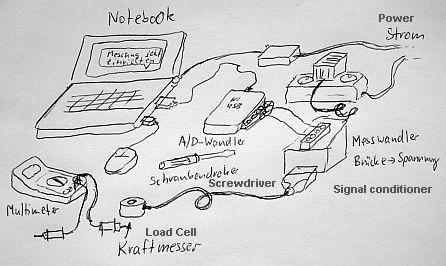 Notebook
Power
Strom
Messung jetzt
einrichten
NI
USB
A/D-Wandler
Messwandler
Brücke→Spannung
Schraubendreher
Screwdriver
Signal conditioner
Multimeter
Load Cell
Kraftmesser